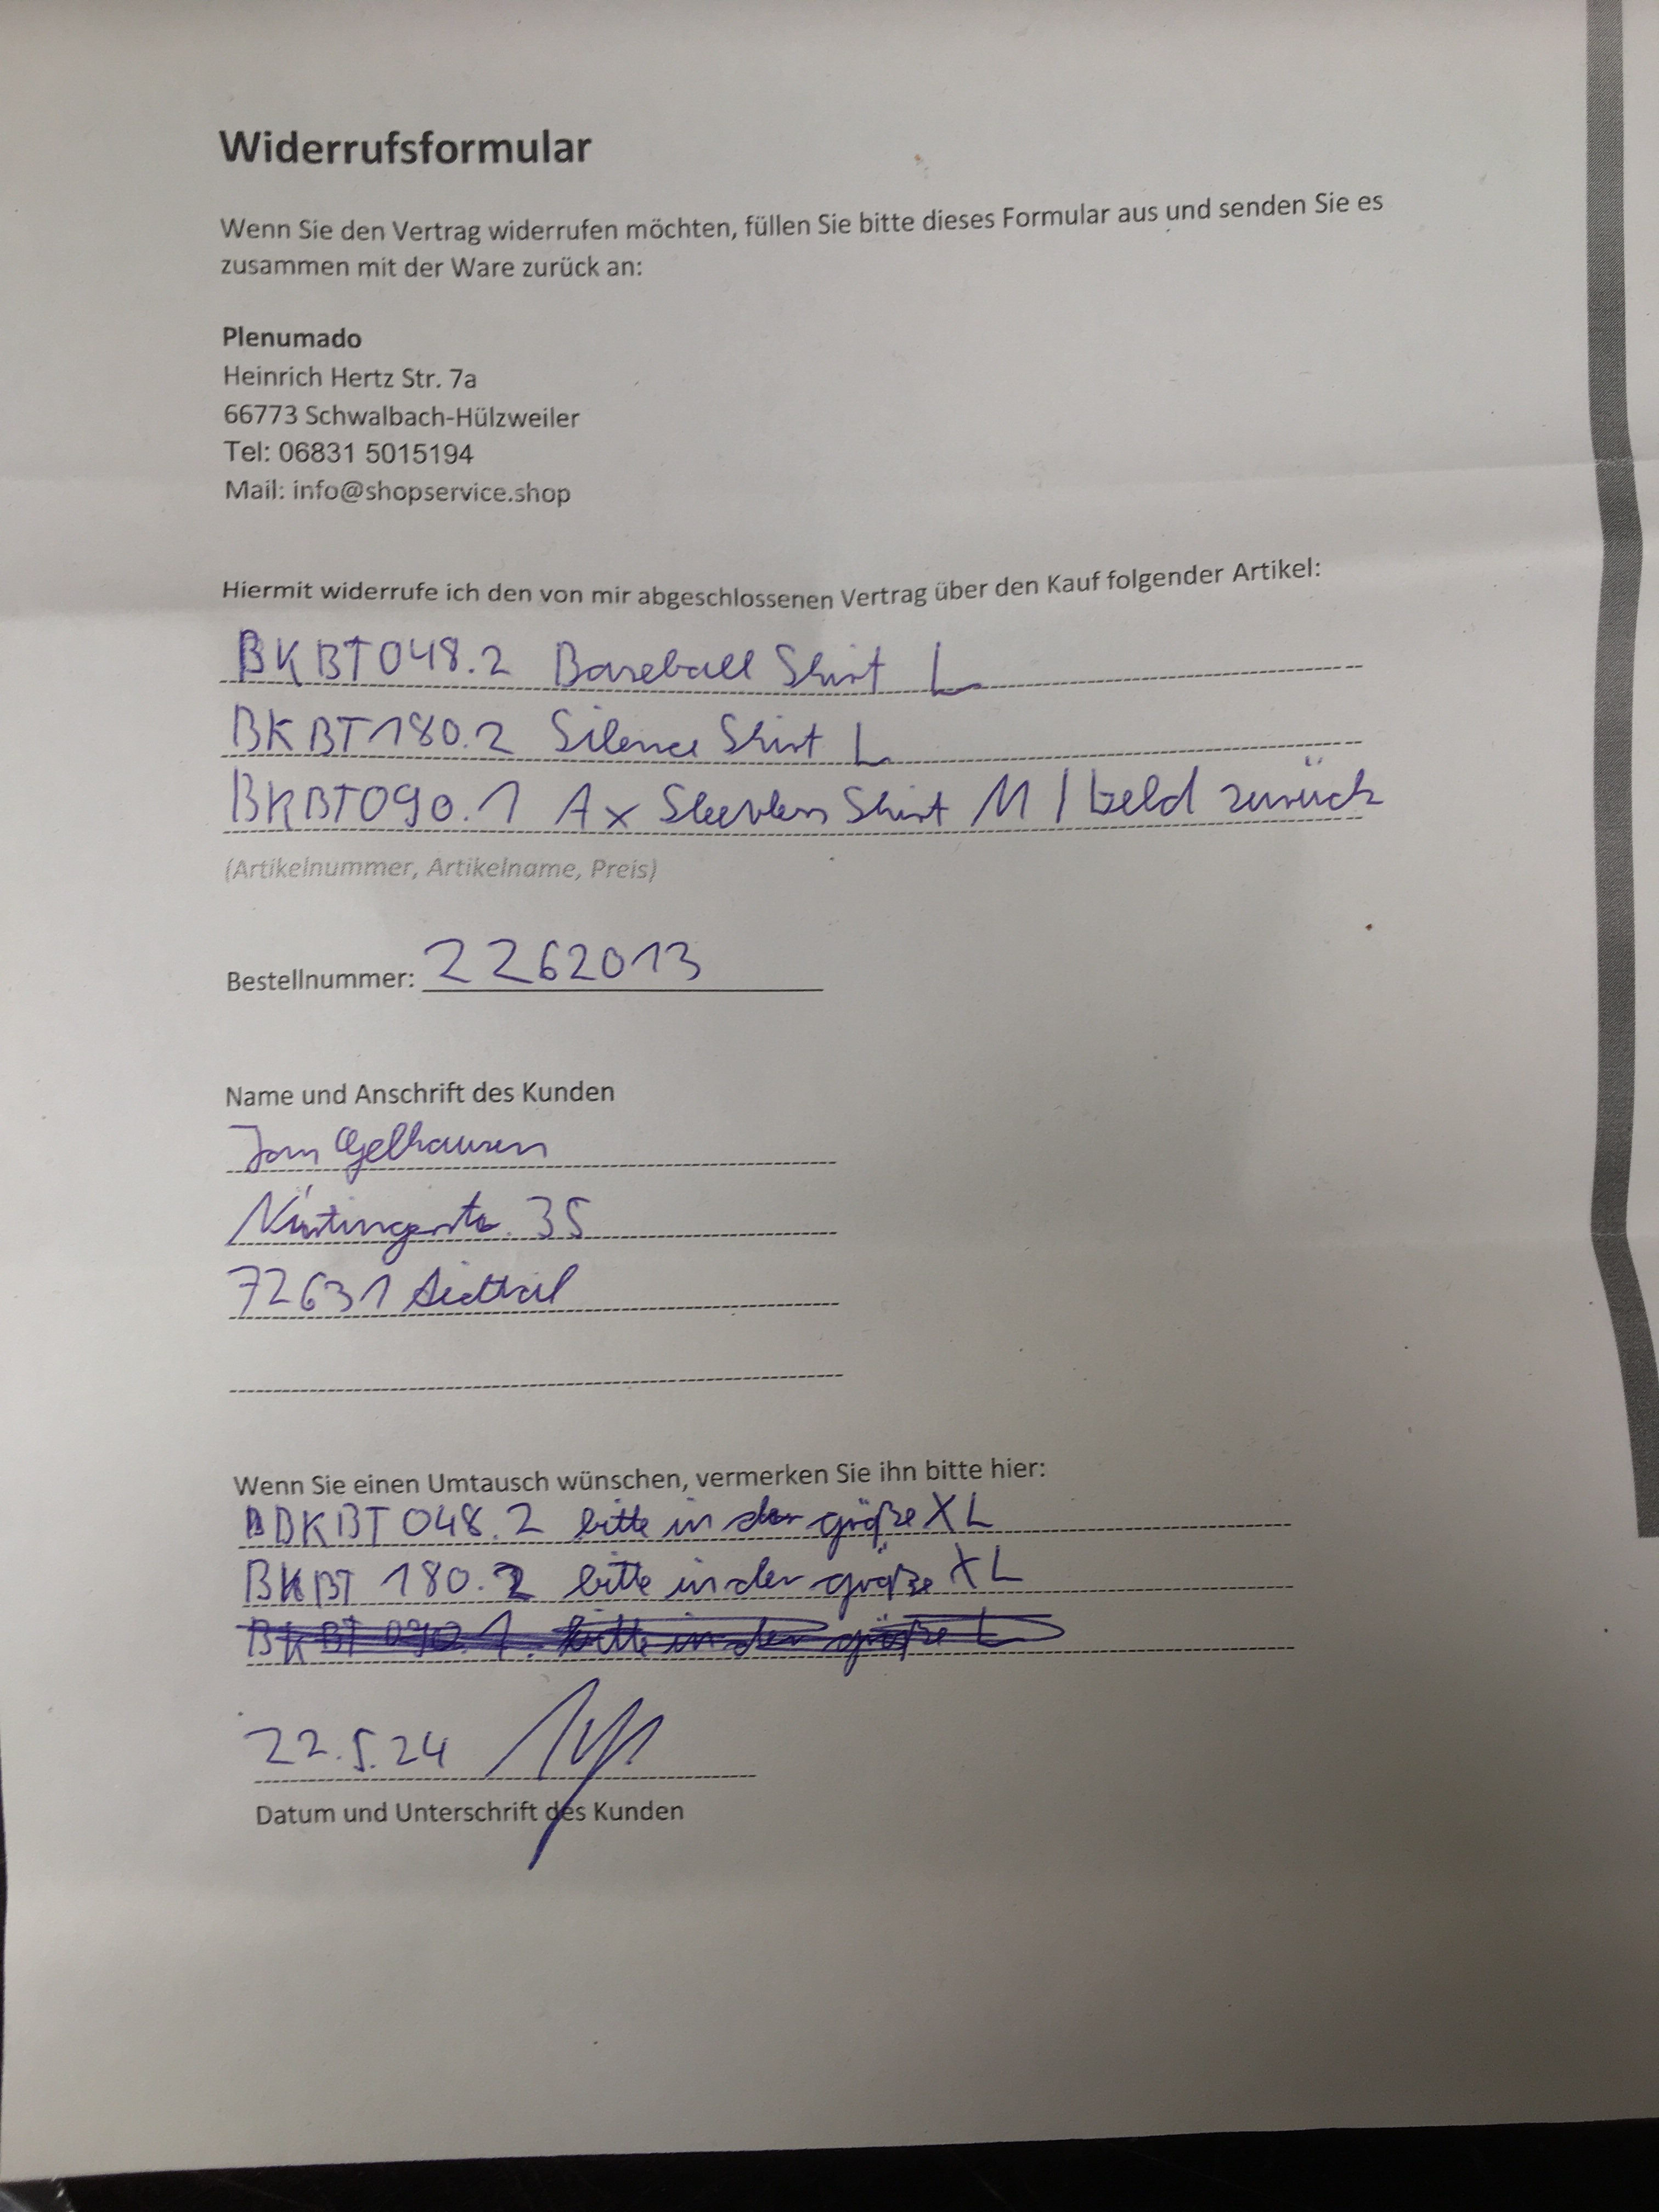 Widerrufsformular
Wenn Sie den Vertrag widerrufen möchten, füllen Sie bitte dieses Formular aus und senden Sie es
zusammen mit der Ware zurück an:
Plenumado
Heinrich Hertz Str. 7a
66773 Schwalbach-Hülzweiler
Tel: 06831 5015194
Mail: info@shopservice.shop
Hiermit widerrufe ich den von mir abgeschlossenen Vertrag über den Kauf folgender Artikel:
BKBT048.2 Baseball Shirt L
BKBT180.2 Silence Shirt L
BKBT090.1 Ax Sleevless Shirt M / Geld zurück
(Artikelnummer, Artikelname, Preis)
Bestellnummer: 2262013
Name und Anschrift des Kunden
Jan Gelhausen
35
72631 Aichtal
Wenn Sie einen Umtausch wünschen, vermerken Sie ihn bitte hier:
BKBT 048.2 bitte in der größe XL
BKBT 180.2 bitte in der größe XL
BKBT 090.1. bitte in der größe L
22.5.24
Datum und Unterschrift des Kunden